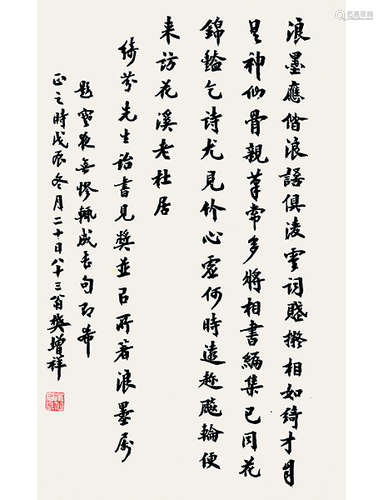 浪墨應偕浪語俱凌雲詞賦擬相如綺才自
具神仙骨親筆常多將相書編集已同花
錦豔乞詩尤見竹心虛何時遠趁飆輪便
来訪花溪老杜居
綺芬先生詒書見獎並以所著浪墨属
題寒夜無憀輒成長句即希
正之時戊辰冬月二十日八十三翁樊增祥